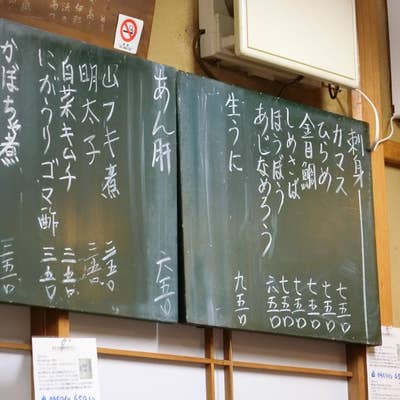 刺身
カマス 七五〇
ひらめ 七五〇
金目鯛 七五〇
しめさば 七五〇
ほうぼう 七五〇
あじなめろう 六五〇
生うに 九五〇
あん肝 六五〇
山フキ煮 三五〇
明太子 三五〇
白菜キムチ 三五〇
にがうりゴマ酢 三五〇
かぼちゃ煮 三五〇